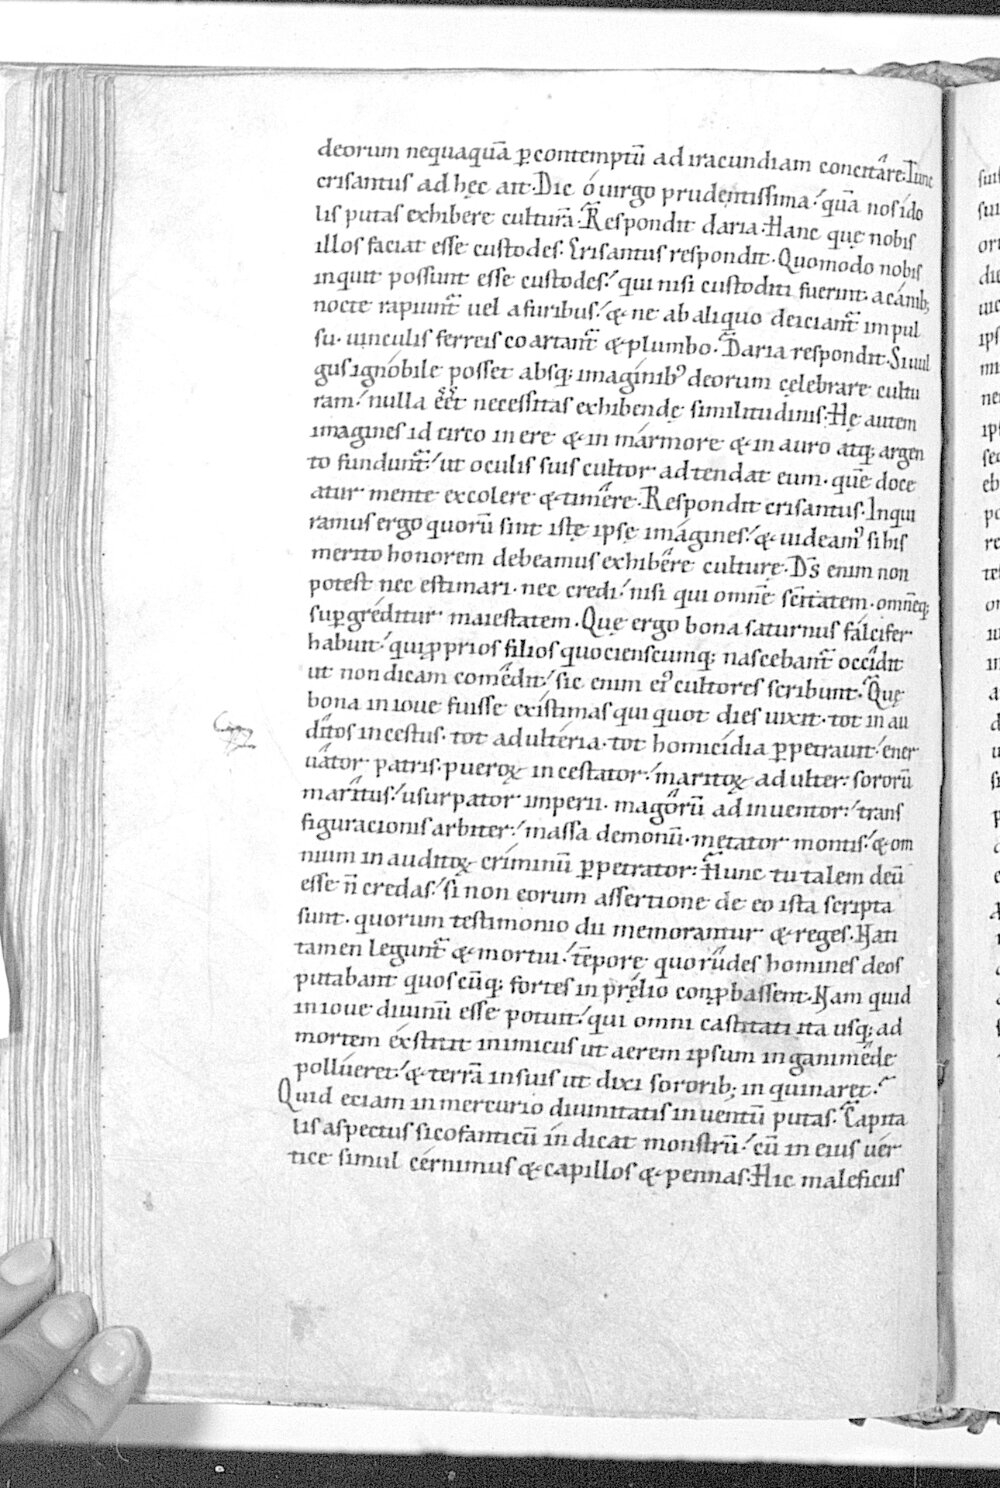 deorum nequaquā ꝑ contemptū ad iracundiam concitare. Tunc
crisantus ad hęc ait. Dic ó uirgo prudentissima. quā nos ido
lis putas exhibere culturā. Respondit daria. Hanc que nobis
illos faciat esse custodes. Crisantus respondit. Quomodo nobis
inquit possunt esse custodes. qui nisi custoditi fuerint. a canib;
nocte rapiunt̄ uel a furibus. & ne ab aliquo deiciant̄ impul
su. uinculis ferreis coartant̄ & plumbo. Daria respondit. Si uul
gus ignobile posset absq; imaginibꝰ deorum cęlebrare cultu
ram. nulla eēt necessitas exhibendę similitudinis. Hę autem
imagines idcirco in ere & in marmore & in auro atq; argen
to fundunt̄. ut oculis suis cultor adtendat eum. quē doce
atur mente excolere & timere. Respondit crisantus. Inqui
ramus ergo quorū sint istę ipsę imagines. & uideamꝰ si his
merito honorem debeamus exhibere culturę. D̄s enim non
potest nec estimari. nec credi. nisi qui omnē sc̄itatem. omnēq;
suꝑgreditur maiestatem. Quę ergo bona saturnus falcifer
habuit. qui ꝓprios filios quocienscumq; nascebant̄ occidit
ut non dicam comedit. sic enim eiꝰ cultores scribunt. Quę
bona in ioue fuisse existimas qui quot dies uixit. tot in au
ditos incestus. tot adulteria. tot homicidia ꝑpetrauit. ener
uator patris. pueroꝝ incestator. maritoꝝ adulter. sororū
maritus. usurpator imperii. magorū adinuentor. trans
figuracionis arbiter. massa demonū. metator montis. & om
nium inauditoꝝ criminū ꝑpetrator. Hunc tu talem deū
esse n̄ credas. si non eorum assertione de eo ista scripta
sunt. quorum testimonio dii memorantur & reges. Nati
tamen legunt̄ & mortui. tēpore quo rudes homines deos
putabant quoscūq; fortes in pręlio conꝓbassent. Nam quid
in ioue diuinū esse potuit. qui omni castitati ita usq; ad
mortem exstitit inimicus ut aerem ipsum in ganimede
pollueret. & terrā in suis ut dixi sororib; inquinaret.
Quid eciam in mercurio diuinitatis inuentū putas. Capita
lis aspectus sicofanticū indicat monstrū. cū in eius uer
tice simul cernimus & capillos & pennas. Hic maleficiis